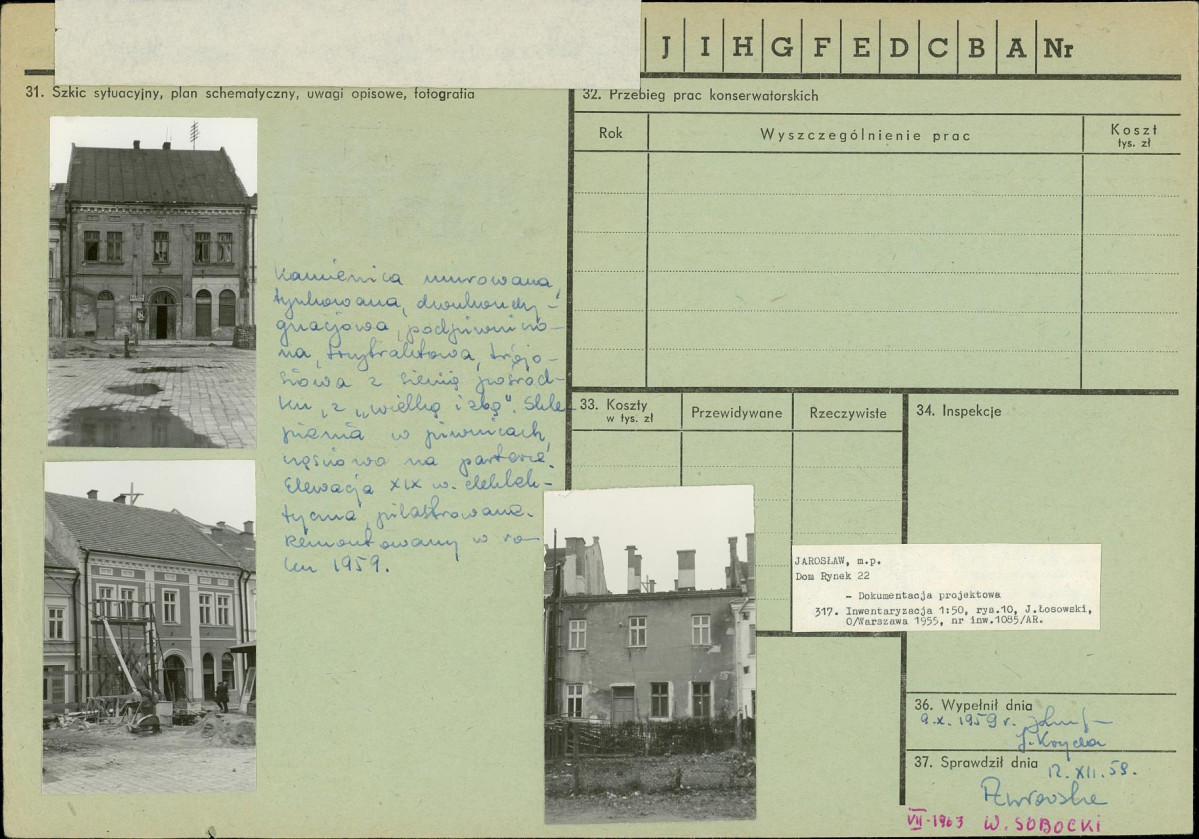 J I H G F E D C B A Nr
31. Szkic sytuacyjny, plan schematyczny, uwagi opisowe, fotografia
Kamienica murowana,
tynkowana, dwukondy-
gnacjowa, podpiwniczo-
na, trzytraktowa, trójo-
siowa z sienią pośrod-
ku, z „wielką izbą". Skle-
pienia w piwnicach,
częściowo na parterze.
Elewacja XIX w. eklek-
tyczna, pilastrowana.
Remontowany w ro-
ku 1959.
32. Przebieg prac konserwatorskich
Rok Wyszczególnienie prac Koszt
tys. zł
33. Koszty
w tys. zł
Przewidywane Rzeczywiste
34. Inspekcje
JAROSŁAW, m.p.
Dom Rynek 22
- Dokumentacja projektowa
317. Inwentaryzacja 1:50, rys.10, J.Łosowski,
O/Warszawa 1955, nr inw.1085/AR.
36. Wypełnił dnia
9.X. 1959 r.
37. Sprawdził dnia
12. XII. 59.
VII-1963 W. SOBOCKI